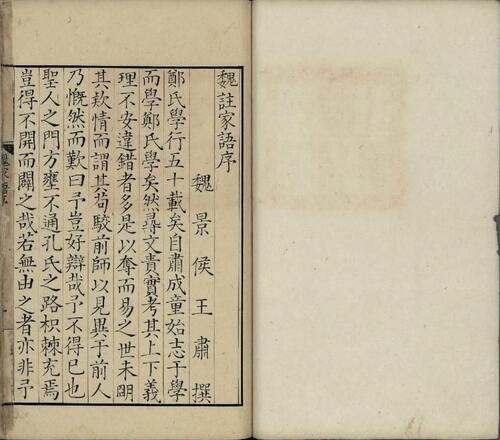 魏註家語序
魏景侯王肅撰
鄭氏學行五十載矣自肅成童始志于學
而學鄭氏學矣然尋文責實考其上下義
理不安違錯者多是以奪而易之世未明
其款情而謂其茍駮前師以見異于前人
乃慨然而歎曰予豈好辯哉予不得已也
聖人之門方壅不通孔氏之路枳棘充焉
豈得不開而闢之哉若無由之者亦非予